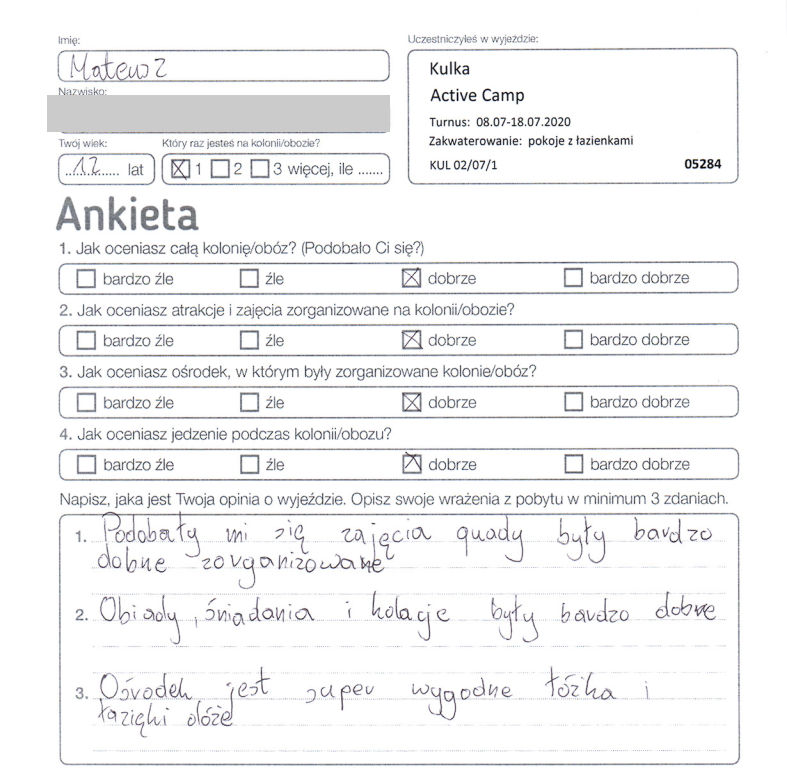 Imię:
Mateusz
Nazwisko:
Twój wiek:
12 lat
Który raz jesteś na kolonii/obozie?
1 2 3 więcej, ile .......
Uczestniczyłeś w wyjeździe:
Kulka
Active Camp
Turnus: 08.07-18.07.2020
Zakwaterowanie: pokoje z łazienkami
KUL 02/07/1 05284
Ankieta
1. Jak oceniasz całą kolonię/obóz? (Podobało Ci się?)
bardzo źle źle dobrze bardzo dobrze
2. Jak oceniasz atrakcje i zajęcia zorganizowane na kolonii/obozie?
bardzo źle źle dobrze bardzo dobrze
3. Jak oceniasz ośrodek, w którym były zorganizowane kolonie/obóz?
bardzo źle źle dobrze bardzo dobrze
4. Jak oceniasz jedzenie podczas kolonii/obozu?
bardzo źle źle dobrze bardzo dobrze
Napisz, jaka jest Twoja opinia o wyjeździe. Opisz swoje wrażenia z pobytu w minimum 3 zdaniach.
1. Podobały mi się zajęcia quady były bardzo
dobrze zorganizowane
2. Obiady, śniadania i kolacje były bardzo dobre
3. Ośrodek jest super wygodne łóżka i